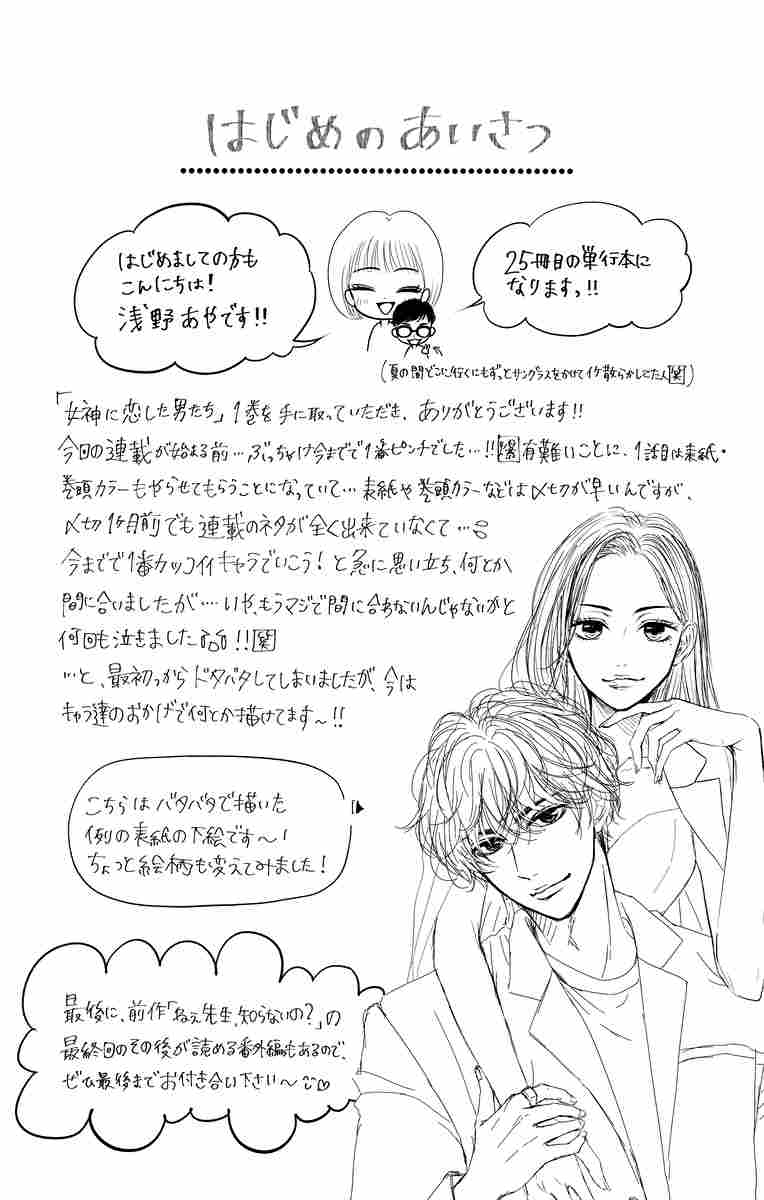 はじめのあいさつ
はじめましての方も
こんにちは!
浅野あやです!!
25冊目の単行本に
なりますっ!!
(夏の間どこに行くにもずっとサングラスをかけてイケ散らかしてた人関)
「女神に恋した男たち」1巻を手に取っていただき、ありがとうございます!!
今回の連載が始まる前…ぶっちゃけ今までで1番ピンチでした…!!関有難いことに、1話目は表紙・
巻頭カラーもやらせてもらうことになっていて…表紙や巻頭カラーなどは〆切が早いんですが、
〆切1ヶ月前でも連載のネタが全く出来ていなくて…
今までで1番カッコイイキャラでいこう!と急に思い立ち、何とか
間に合いましたが…いや、もうマジで間に合わないんじゃないかと
何回も泣きました!!関
…と、最初っからドタバタしてしまいましたが、今は
キャラ達のおかげで何とか描けてます〜!!
こちらはバタバタで描いた
例の表紙の下絵です〜!
ちょっと絵柄も変えてみました!
最後に、前作「ねぇ先生、知らないの?」の
最終回のその後が読める番外編もあるので、
ぜひ最後までお付き合い下さい〜♡